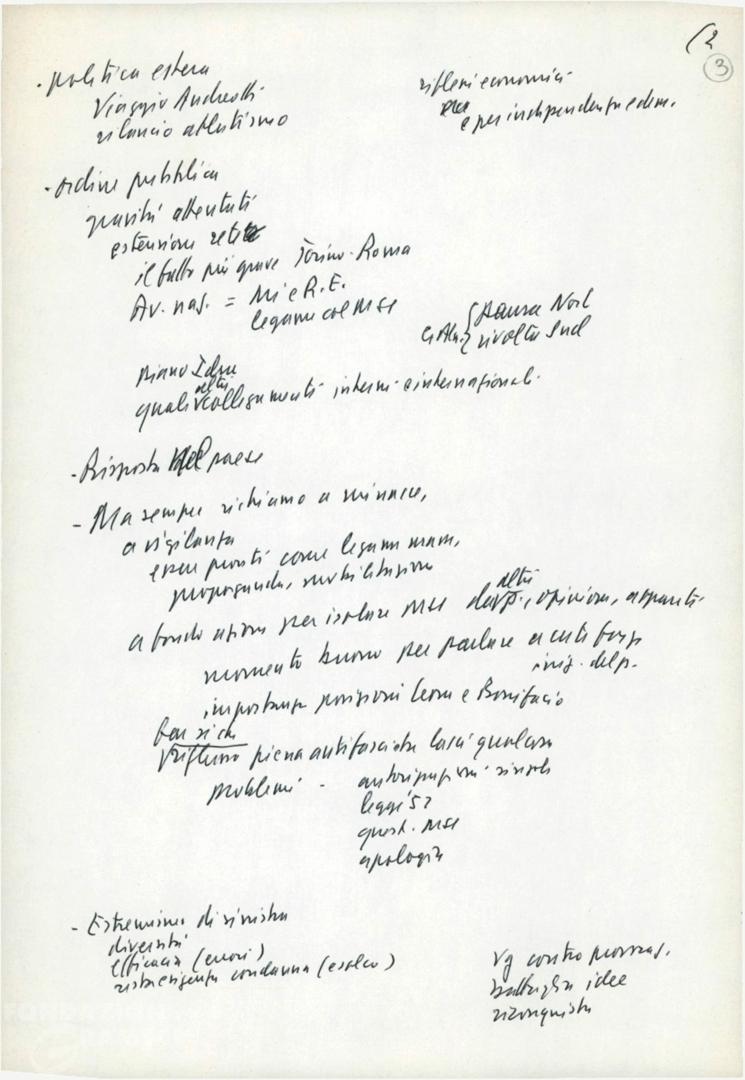 (2
3
- politica estera
Viaggio Andreotti
rilancio atlantismo
riflessi economici
e per indipendenza e dem.
- ordine pubblico
gravità attentati
estensione rete
il fatto più grave Torino-Roma
Av. naz. = Mi e R.E.
legami col MSI
paura Nord
rivolta Sud
piano
quali altri collegamenti interni e internazionali.
- Risposta del paese
- Ma sempre richiamo a minacce,
a vigilanza
esser pronti come legami massa,
propaganda, mobilitazione
a fondo azione per isolare MSI da altri p., opinione, apparati
momento buono per parlare a certi
iniz. del p.
importanza posizioni Leone e Bonifacio
piena antifascista lascia qualcosa
problemi -
autorizzazioni singoli
legge 52
quest. MSI
apologia
- Estremismo di sinistra
diversità
efficacia (errori)
esigenza condanna (esalto)
Vg contro provoc.
battaglia idee
riconquista
FONDAZIONE